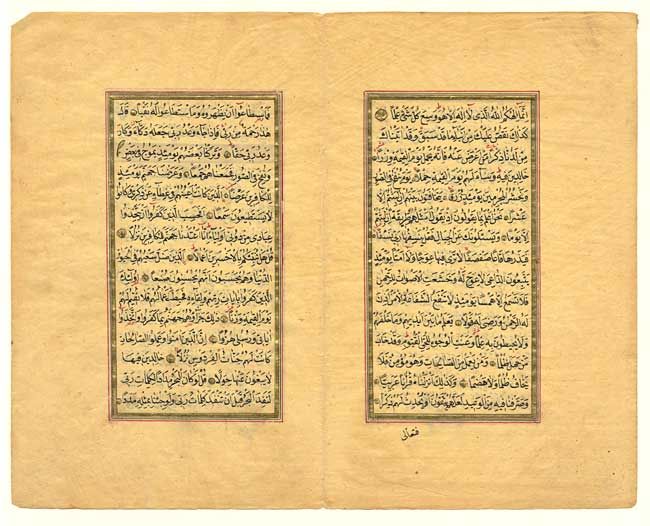 إنما إلهكم الله الذي لا إله إلا هو وسع كل شيء علما
كذلك نقص عليك من أنباء ما قد سبق وقد آتيناك
من لدنا ذكرا من أعرض عنه فإنه يحمل يوم القيمة وزرا
خالدين فيه وساء لهم يوم القيمة حملا يوم ينفخ في الصور
ونحشر المجرمين يومئذ زرقا يتخافتون بينهم إن لبثتم إلا
عشرا نحن أعلم بما يقولون إذ يقول أمثلهم طريقة إن لبثتم
إلا يوما ويسئلونك عن الجبال فقل ينسفها ربي نسفا
فيذرها قاعا صفصفا لا ترى فيها عوجا ولا أمتا يومئذ
يتبعون الداعي لا عوج له وخشعت الأصوات للرحمن
فلا تسمع إلا همسا يومئذ لا تنفع الشفاعة إلا من أذن
له الرحمن ورضي له قولا يعلم ما بين أيديهم وما خلفهم
ولا يحيطون به علما وعنت الوجوه للحي القيوم وقد خاب
من حمل ظلما ومن يعمل من الصالحات وهو مؤمن فلا
يخاف ظلما ولا هضما وكذلك أنزلناه قرآنا عربيا
وصرفنا فيه من الوعيد لعلهم يتقون أو يحدث لهم ذكرا
فتعالى
فما اسطاعوا أن يظهروه وما استطاعوا له نقبا قال
هذا رحمة من ربي فإذا جاء وعد ربي جعله دكاء وكان
وعد ربي حقا وتركنا بعضهم يومئذ يموج في بعض
ونفخ في الصور فجمعناهم جمعا وعرضنا جهنم يومئذ
للكافرين عرضا الذين كانت أعينهم في غطاء عن ذكري وكانوا
لا يستطيعون سمعا أفحسب الذين كفروا أن يتخذوا
عبادي من دوني أولياء إنا أعتدنا جهنم للكافرين نزلا
قل هل ننبئكم بالأخسرين أعمالا الذين ضل سعيهم في الحيوة
الدنيا وهم يحسبون أنهم يحسنون صنعا أولئك
الذين كفروا بآيات ربهم ولقائه فحبطت أعمالهم فلا نقيم لهم
يوم القيمة وزنا ذلك جزاؤهم جهنم بما كفروا واتخذوا
آياتي ورسلي هزوا إن الذين آمنوا وعملوا الصالحات
كانت لهم جنات الفردوس نزلا خالدين فيها
لا يبغون عنها حولا قل لو كان البحر مدادا لكلمات ربي
لنفد البحر قبل أن تنفد كلمات ربي ولو جئنا بمثله مددا